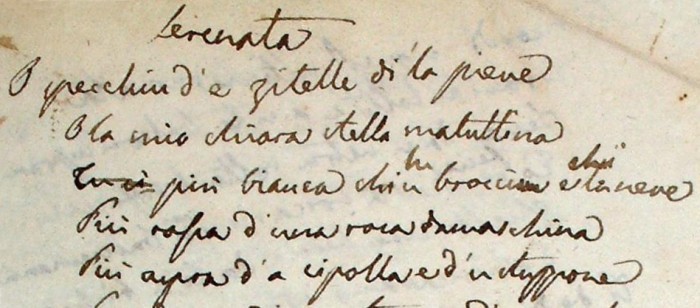 Serenata
O specchiu d'e zitelle di la pieve
O la mio chiara stella matuttina
più bianca chi lu brocciu e chi la neve
Più rossa d'una rosa damaschina
Più aspra d'a cipolla e d'u stuppone